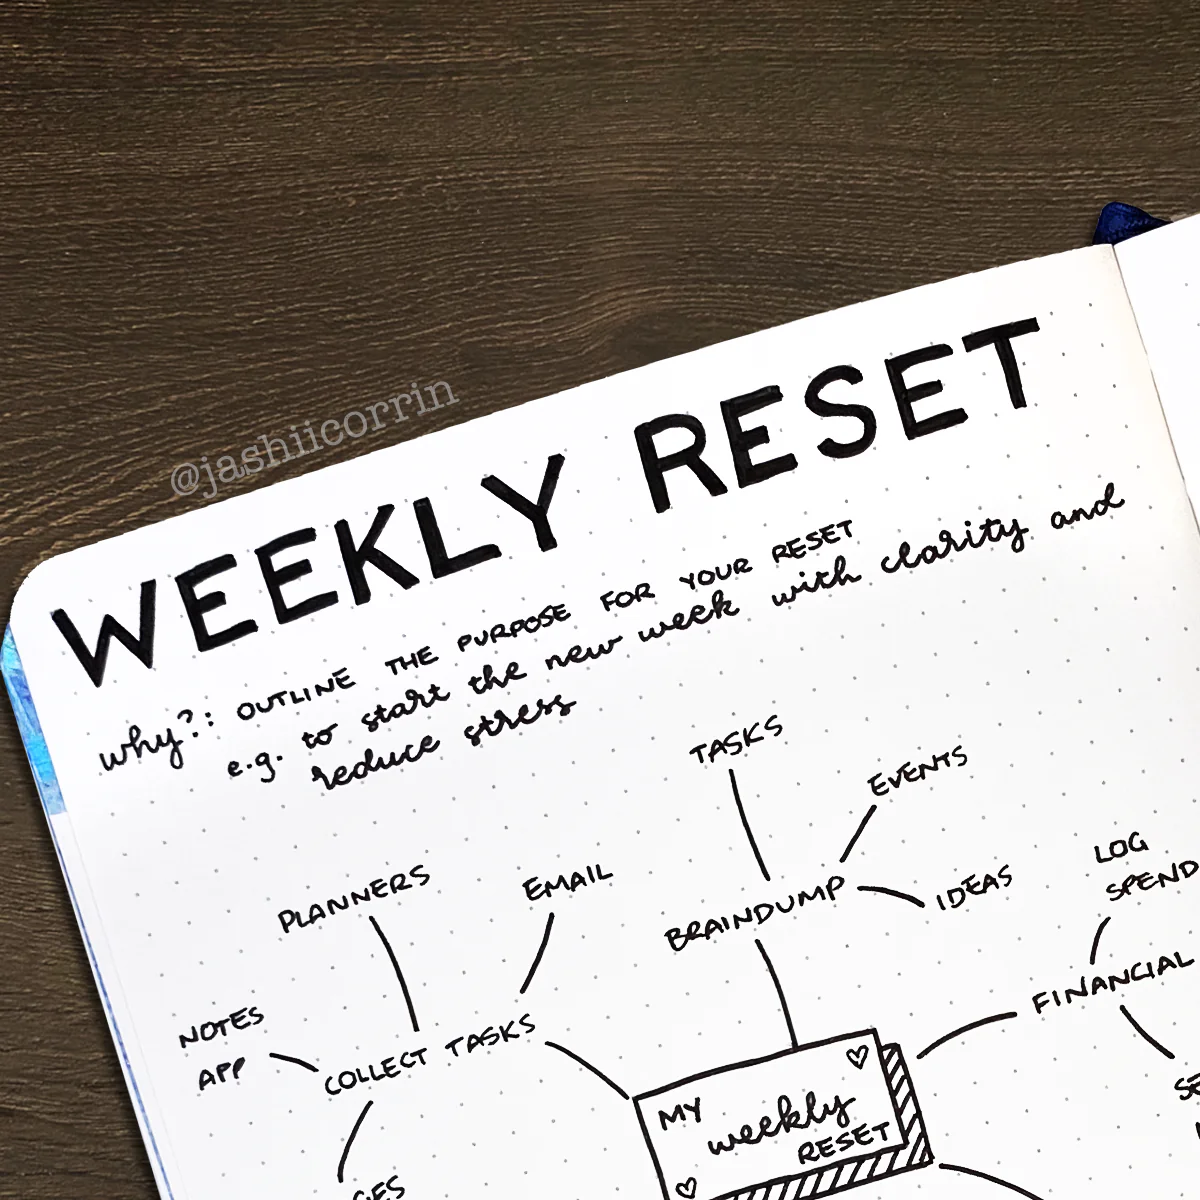 @jashiicorrin
WEEKLY RESET
why?: OUTLINE THE PURPOSE FOR YOUR RESET
e.g. to start the new week with clarity and
reduce stress
TASKS
EVENTS
IDEAS
BRAINDUMP
LOG
SPEND
FINANCIAL
PLANNERS
EMAIL
NOTES
APP
COLLECT TASKS
MY
weekly
RESET